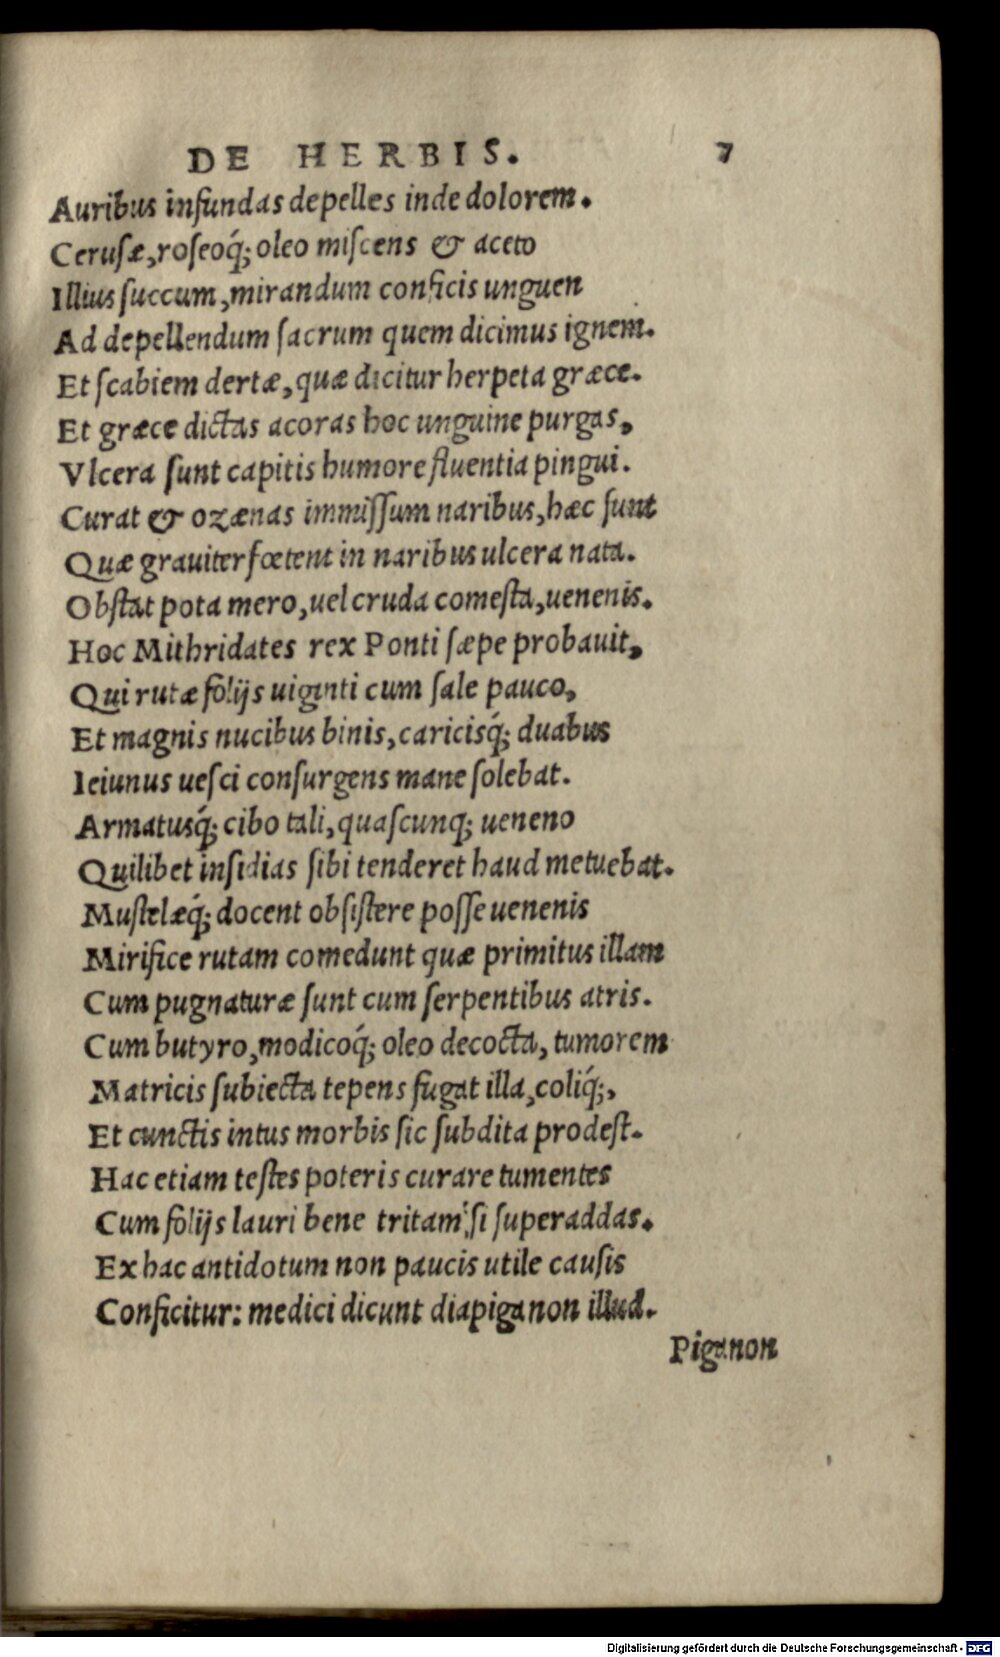 DE HERBIS. 7
Auribus infundas depelles inde dolorem.
Cerusæ, roseoq́; oleo miscens & aceto
Illius succum, mirandum conficis unguen
Ad depellendum sacrum quem dicimus ignem.
Et scabiem dertæ, quæ dicitur herpeta græce.
Et græce dictas acoras hoc unguine purgas,
Vlcera sunt capitis humore fluentia pingui.
Curat & ozænas immissum naribus, hæc sunt
Quæ grauiter fœtent in naribus ulcera nata.
Obstat pota mero, uel cruda comesta, uenenis.
Hoc Mithridates rex Ponti sæpe probauit,
Qui rutæ folijs uiginti cum sale pauco,
Et magnis nucibus binis, caricisq́; duabus
Ieiunus uesci consurgens mane solebat.
Armatusq́; cibo tali, quascunq; ueneno
Quilibet insidias sibi tenderet haud metuebat.
Mustelæq́; docent obsistere posse uenenis
Mirifice rutam comedunt quæ primitus illam
Cum pugnaturæ sunt cum serpentibus atris.
Cum butyro, modicoq́; oleo decocta, tumorem
Matricis subiecta tepens fugat illa, coliq́;,
Et cunctis intus morbis sic subdita prodest.
Hac etiam testes poteris curare tumentes
Cum folijs lauri bene tritam si superaddas.
Ex hac antidotum non paucis utile causis
Conficitur: medici dicunt diapiganon illud.
Piganon
Digitalisierung gefördert durch die Deutsche Forschungsgemeinschaft - DFG